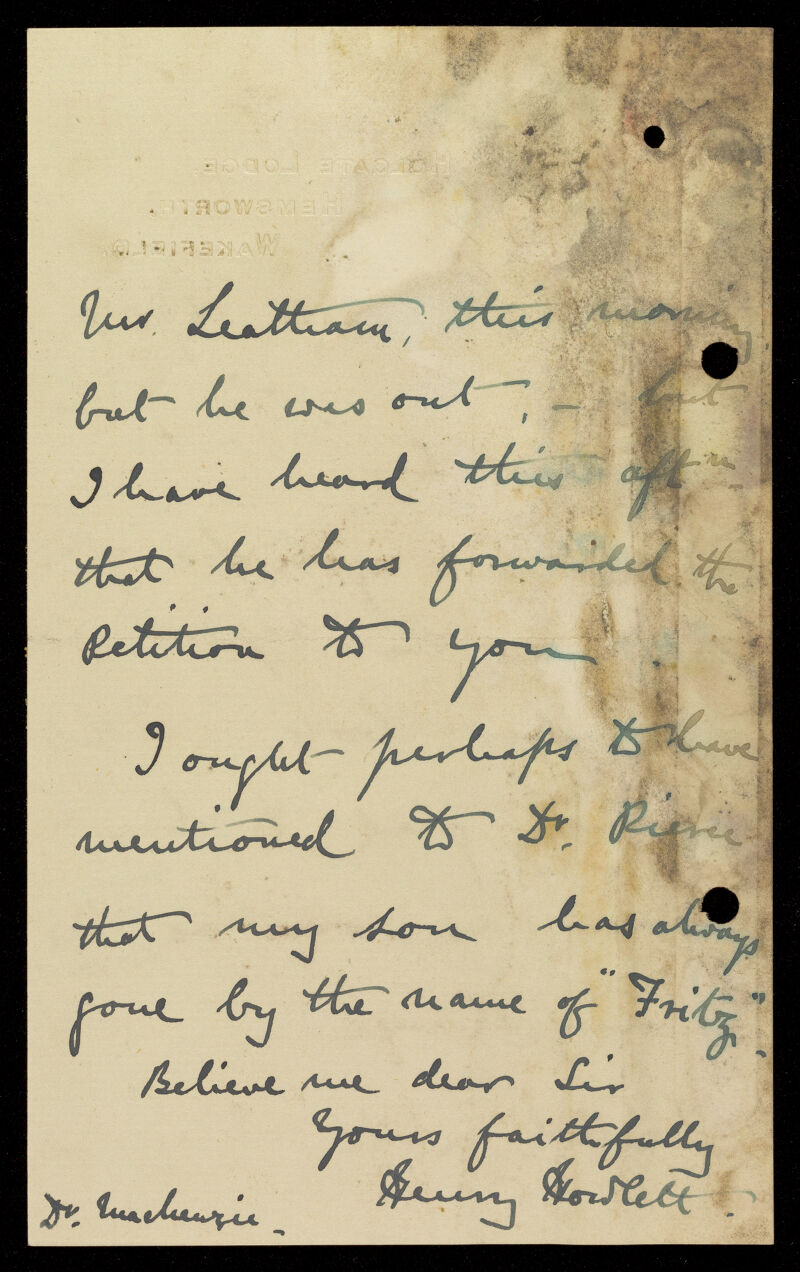 HOLGATE LODGE,
HEMSWORTH,
WAKEFIELD.
Mr. Leatham, this morning,
but he was out, – but
I have heard this aftn
that he has forwarded the
Petition to you.
I ought perhaps to have
mentioned to Dr. Pierce
that my son has always
gone by the name of "Fritz".
Believe me dear Sir
Yours faithfully
Henry Howlett.
Dr. Mackenzie.